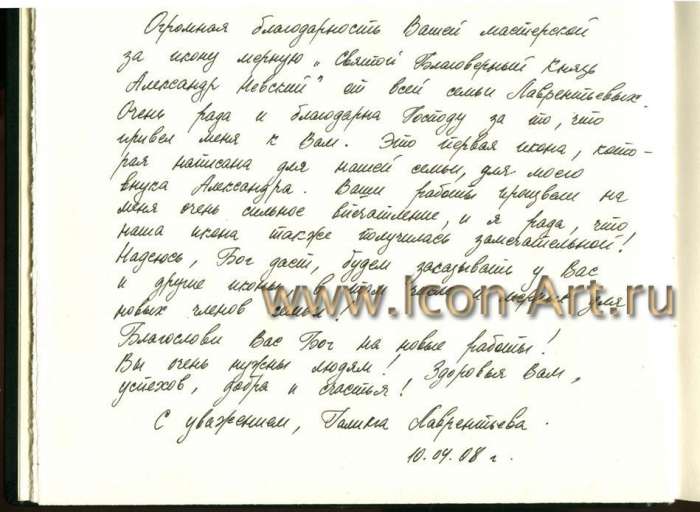 Огромная благодарность Вашей мастерской
за икону мерную „Святой Благоверный Князь
Александр Невский" от всей семьи Лаврентьевых.
Очень рада и благодарна Господу за то, что
привел меня к Вам. Это первая икона, кото-
рая написана для нашей семьи, для моего
внука Александра. Ваши работы произвели на
меня очень сильное впечатление, и я рада, что
наша икона также получилась замечательной!
Надеюсь, Бог даст, будем заказывать у Вас
и другие иконы, в том числе и мерные для
новых членов семьи!
www.Icon-Art.ru
Благослови Вас Бог на новые работы!
Вы очень нужны людям! Здоровья Вам,
успехов, добра и счастья!
С уважением, Галина Лаврентьева.
10.04.08 г.